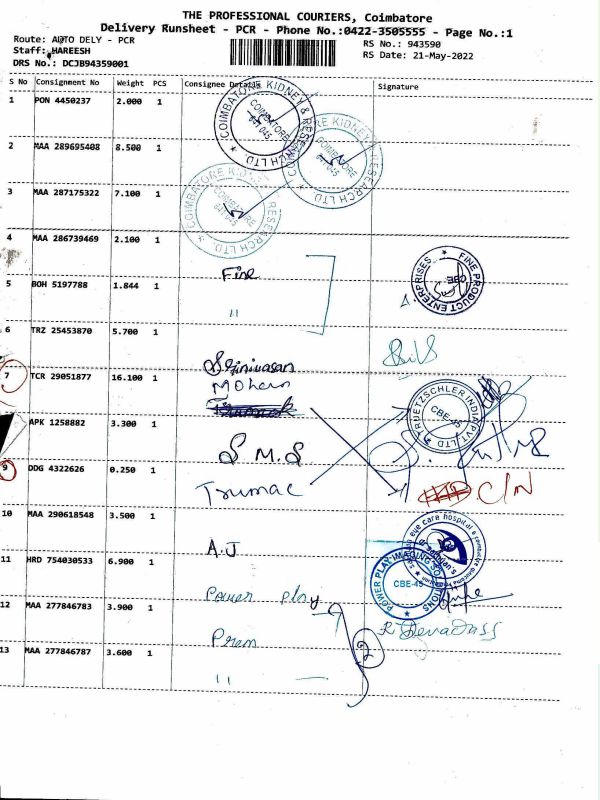 THE PROFESSIONAL COURIERS, Coimbatore
Delivery Runsheet - PCR - Phone No.:0422-3505555 - Page No.:1
Route: AUTO DELY - PCR
RS No.: 943590
Staff: HAREESH
RS Date: 21-May-2022
DRS No.: DCJB94359001
S No Consignment No Weight PCS Consignee Details Signature
1 PON 4450237 2.000 1
COIMBATORE KIDNEY & RESEARCH LTD
COIMBATORE
2 MAA 289695408 8.500 1
KIDNEY & RESEARCH LTD
COIMBATORE
3 MAA 287175322 7.100 1
COIMBATORE KIDNEY RESEARCH LTD
COIMBATORE
4 MAA 286739469 2.100 1
Fine
FINE PRODUCT ENTERPRISES
CBE
5 BOH 5197788 1.844 1
"
6 TRZ 25453870 5.700 1
Srinivasan
7 TCR 29051877 16.100 1
Mohan
TRUETZSCHLER INDIA PVT LTD
CBE-45
APK 1258882 3.300 1
S.M.S
9 DDG 4322626 0.250 1
Trumac
C/N
10 MAA 290618548 3.500 1
A.J
eye care hospital
11 HRD 754030533 6.900 1
Power play
POWER PLAY IMAGING SOLUTIONS
CBE-45
12 MAA 277846783 3.900 1
Prem
2
R Devadass
13 MAA 277846787 3.600 1
"